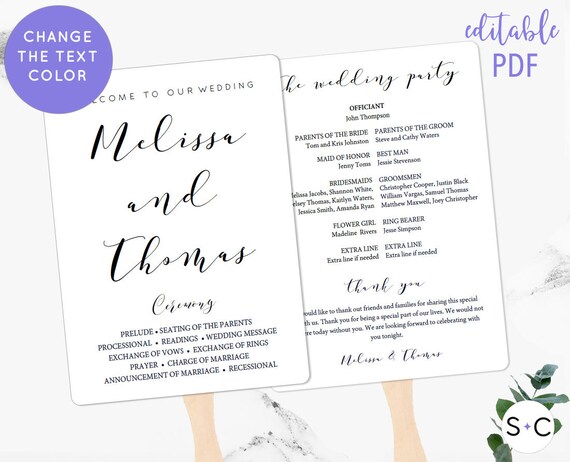 CHANGE
THE TEXT
COLOR
editable
PDF
TO OUR WEDDING
Melissa
and
Thomas
Ceremony
PRELUDE • SEATING OF THE PARENTS
PROCESSIONAL • READINGS • WEDDING MESSAGE
EXCHANGE OF VOWS • EXCHANGE OF RINGS
PRAYER • CHARGE OF MARRIAGE
ANNOUNCEMENT OF MARRIAGE • RECESSIONAL
the wedding party
OFFICIANT
John Thompson
PARENTS OF THE BRIDE PARENTS OF THE GROOM
Tom and Kris Johnston Steve and Cathy Waters
MAID OF HONOR BEST MAN
Jenny Toms Jessie Stevenson
BRIDESMAIDS GROOMSMEN
Jacobs, Shannon White, Christopher Cooper, Justin Black
Thomas, Kaitlyn Waters, William Vargas, Samuel Thomas
Jessica Smith, Amanda Ryan Matthew Maxwell, Joey Christopher
FLOWER GIRL RING BEARER
Madeline Rivers Jesse Simpson
EXTRA LINE EXTRA LINE
Extra line if needed Extra line if needed
thank you
like to thank out friends and families for sharing this special
us. Thank you for being a special part of our lives. We would not
today without you. We are looking forward to celebrating with
you tonight.
Melissa & Thomas
S+C